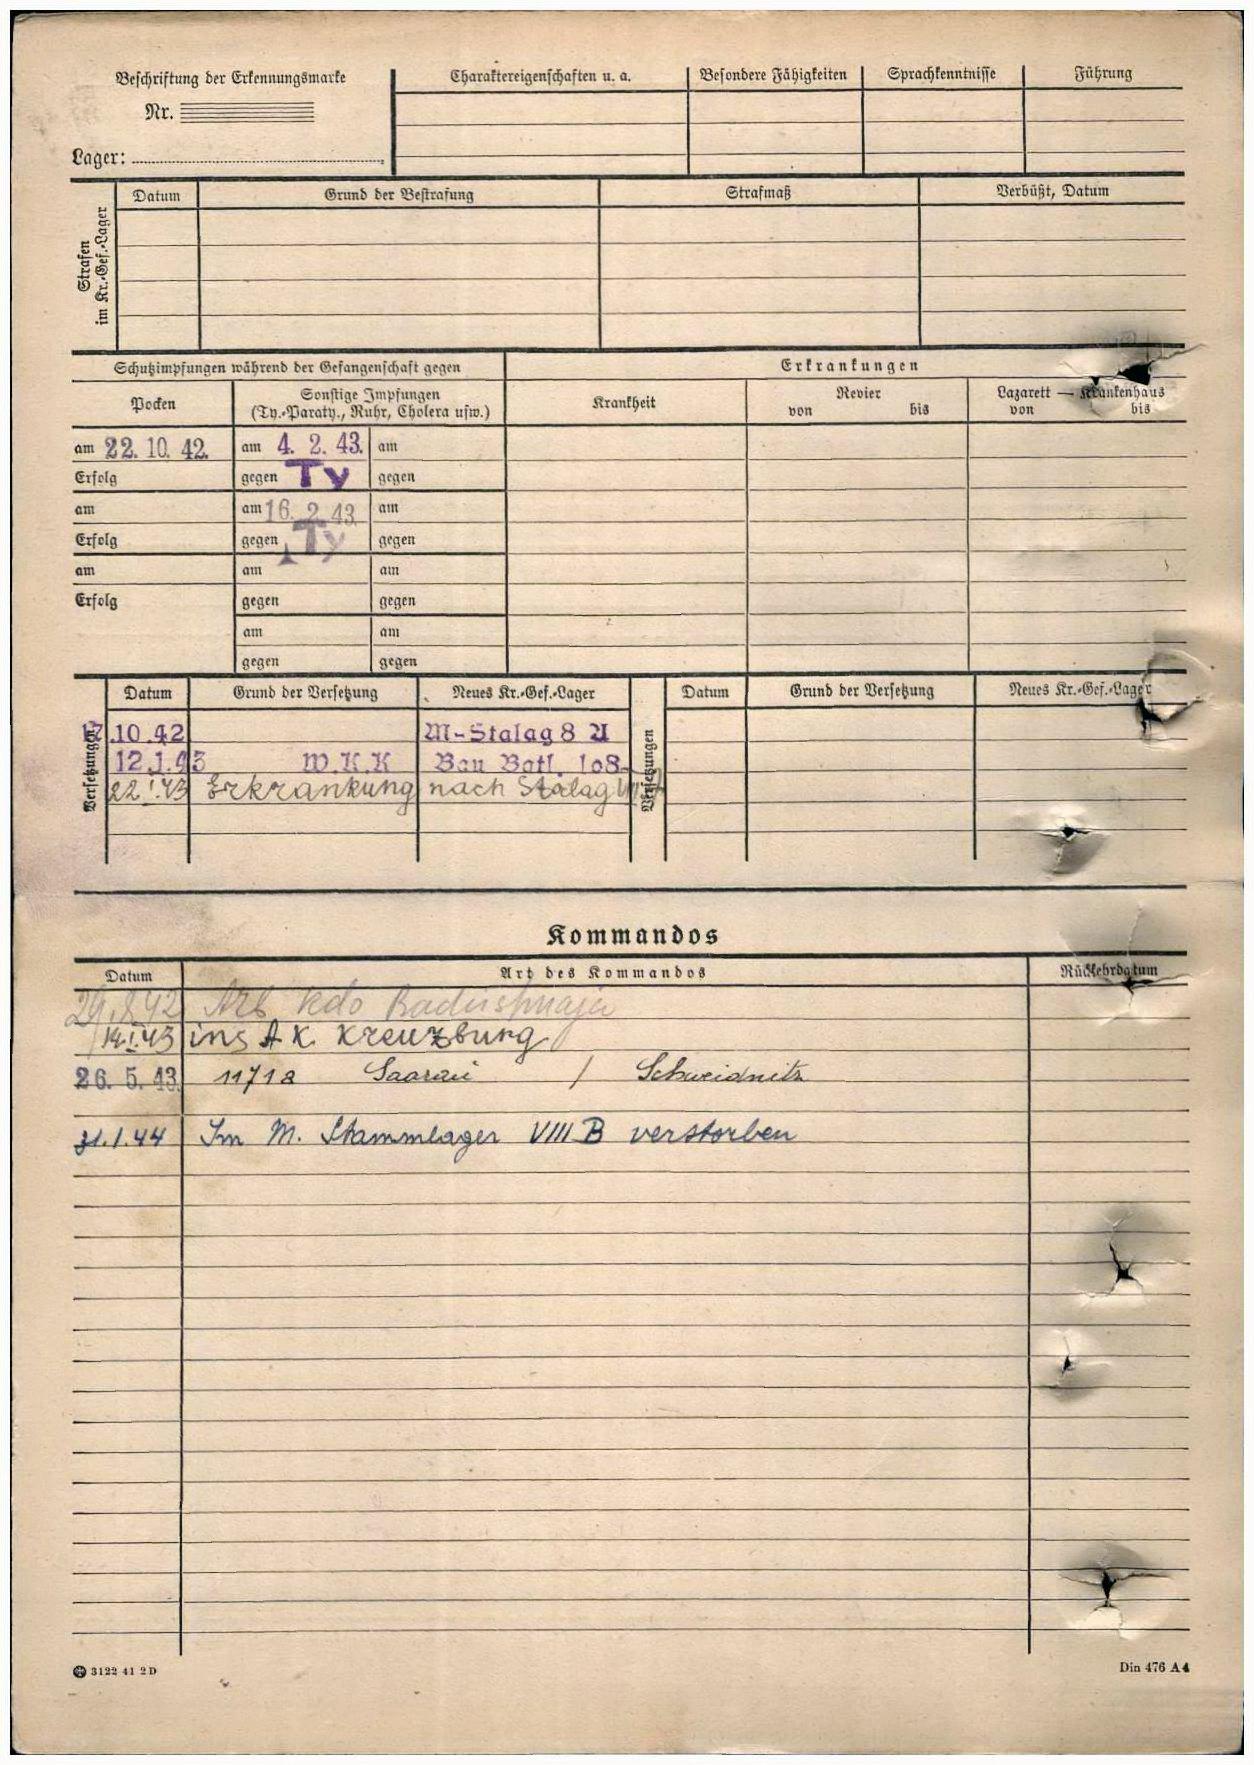 Beschriftung der Erkennungsmarke
Nr.
Lager:
Charaktereigenschaften u. a. Besondere Fähigkeiten Sprachkenntnisse Führung
Strafen im Kr.-Gef.-Lager
Datum Grund der Bestrafung Strafmaß Verbüßt, Datum
Schutzimpfungen während der Gefangenschaft gegen
Pocken
Sonstige Impfungen
(Ty.-Paraty., Ruhr, Cholera usw.)
Erkrankungen
Krankheit
Revier
von bis
Lazarett — Krankenhaus
von bis
am 22. 10. 42. am 4. 2. 43. am
Erfolg gegen Ty gegen
am am 16. 2. 43. am
Erfolg gegen Ty gegen
am am am
Erfolg gegen gegen
am am
gegen gegen
Versetzungen
Datum Grund der Versetzung Neues Kr.-Gef.-Lager
17.10.42 M-Stalag 8
12.1.43 W.K.K Bau Batl. 108
22.I.43 Erkrankung nach Stalag
Versetzungen
Datum Grund der Versetzung Neues Kr.-Gef.-Lager
Kommandos
Datum Art des Kommandos Rückkehrdatum
Arb Kdo
14.I.43 ins A K. Kreuzburg
26. 5. 43. 11718 Saarau / Schweidnitz
31.1.44 Im M. Stammlager VIII B verstorben
3122 41 2 D
Din 476 A 4